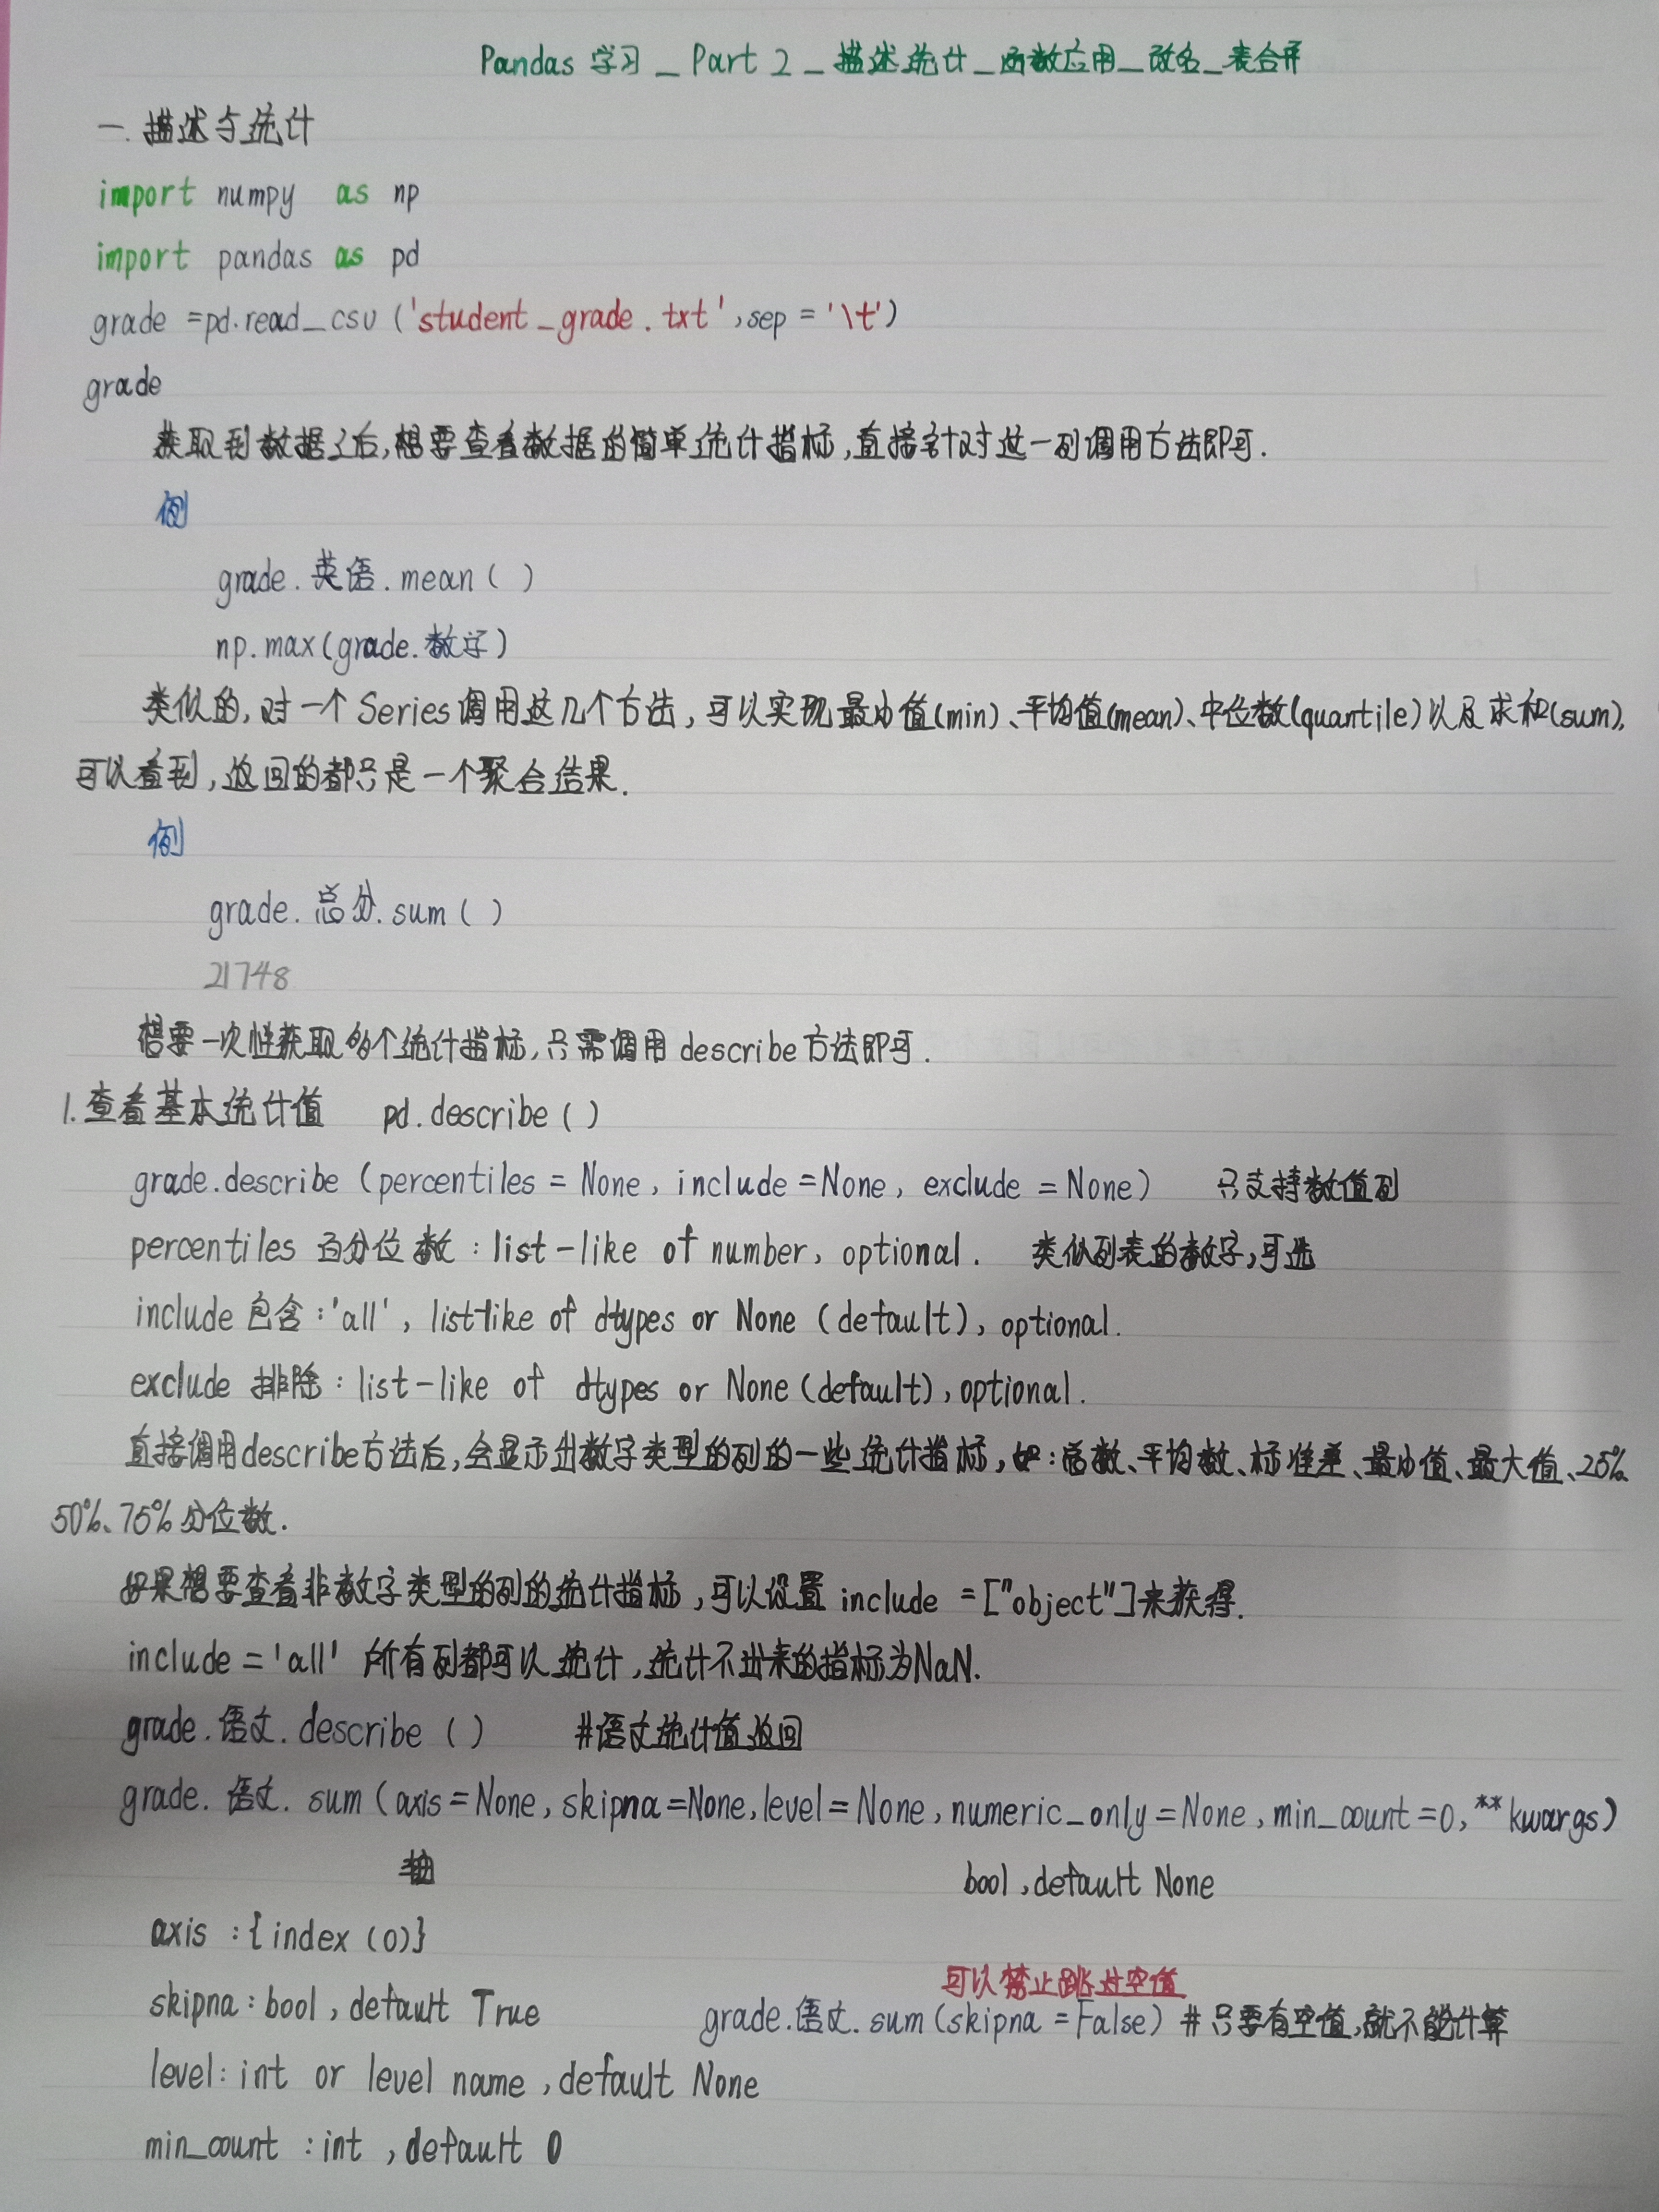 Pandas 学习_Part 2_描述统计_函数应用_改名_表合并
一.描述与统计
import numpy as np
import pandas as pd
grade =pd.read_csv ('student_grade.txt',sep='\t')
grade
获取到数据之后,想要查看数据的简单统计指标,直接针对这一列调用方法即可.
例
grade.英语.mean( )
np.max(grade.数学)
类似的,对一个Series调用这几个方法,可以实现最小值(min)、平均值(mean)、中位数(quantile)以及求和(sum),
可以看到,返回的都只是一个聚合结果.
例
grade.总分.sum( )
21748
想要一次性获取多个统计指标,只需调用describe方法即可.
1.查看基本统计值 pd.describe( )
grade.describe (percentiles = None, include =None, exclude = None) 只支持数值列
percentiles 百分位数:list-like of number, optional. 类似列表的数字,可选
include 包含:'all', list-like of dtypes or None (default), optional.
exclude 排除:list-like of dtypes or None (default), optional.
直接调用describe方法后,会显示出数字类型的列的一些统计指标,如:总数、平均数、标准差、最小值、最大值、25%、
50%、75%分位数.
如果想要查看非数字类型的列的统计指标,可以设置 include =["object"]来获得.
include='all' 所有列都可以统计,统计不出来的指标为NaN.
grade.语文.describe ( ) #语文统计值返回
grade.语文.sum (axis=None, skipna=None, level=None, numeric_only=None, min_count=0, **kwargs)
轴 bool, default None
axis :{index (0)}
可以禁止跳过空值
skipna: bool, default True grade.语文.sum (skipna =False) #只要有空值,就不能计算
level: int or level name, default None
min_count : int , default 0